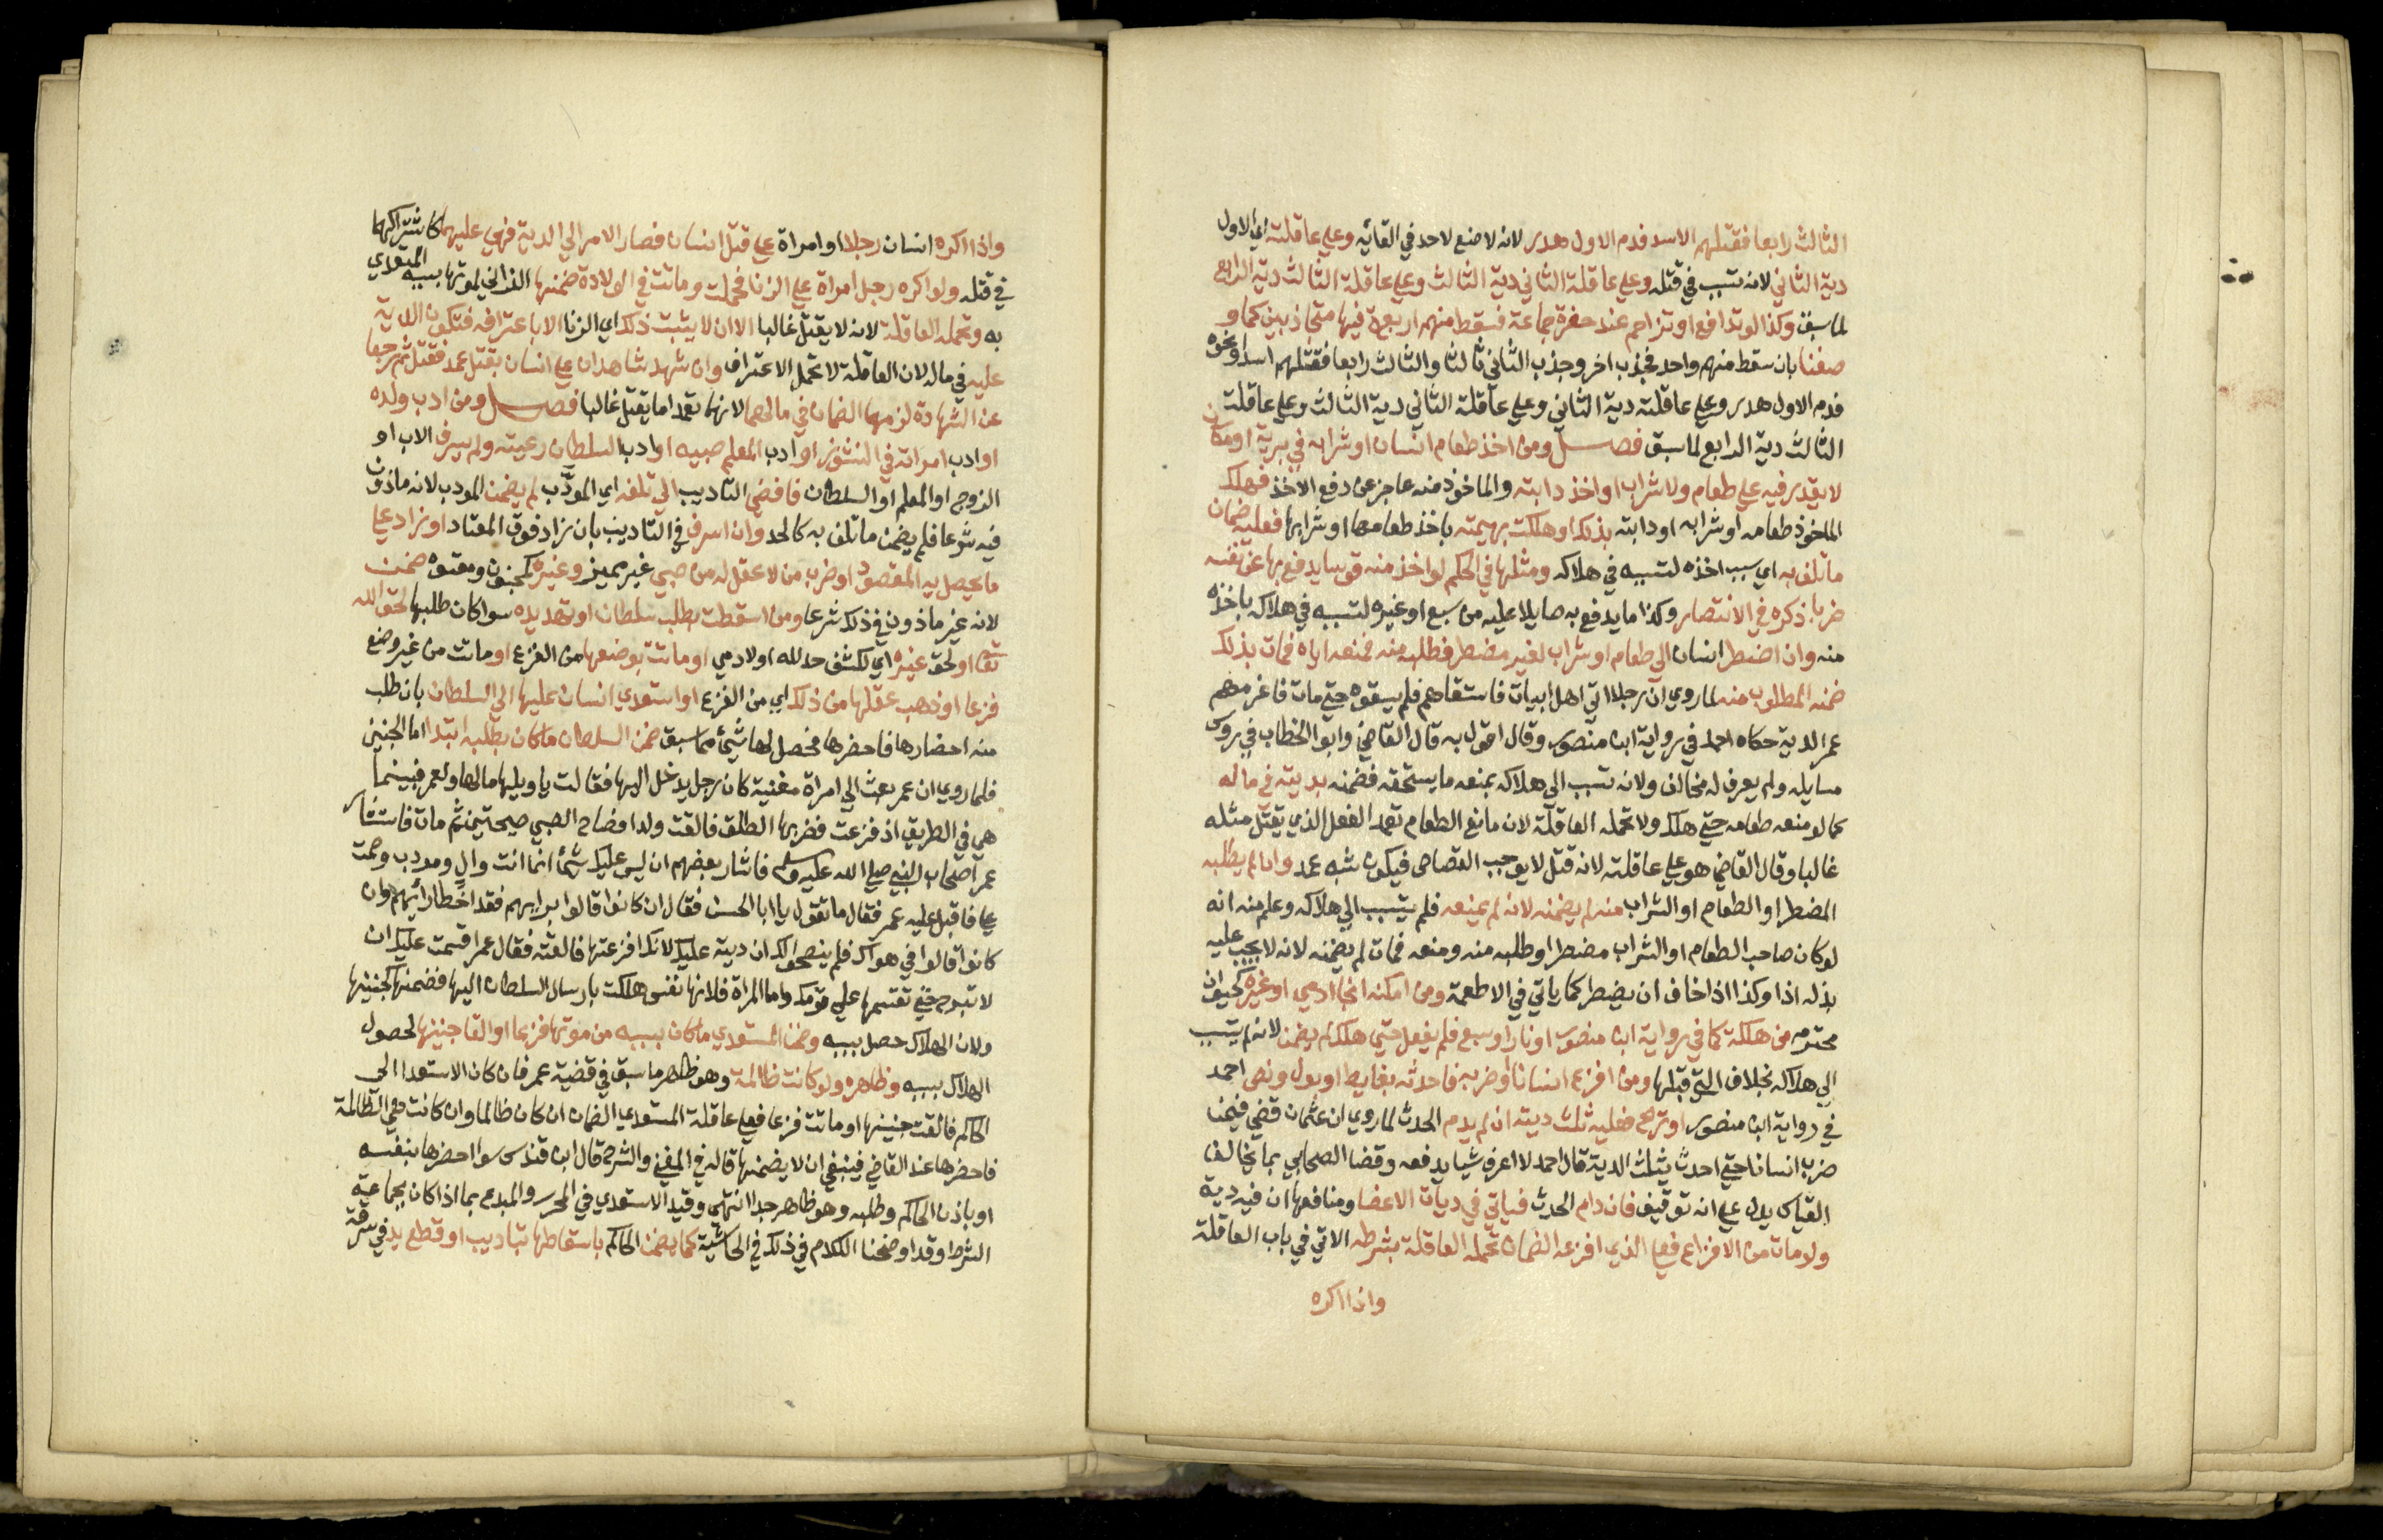 الثالث رابعا فقتلهم الاسد فدم الاول هدر لانه لا صنع لاحد في القائه وعلي عاقلته اي الاول
دية الثاني لانه تسبب في قتله وعلي عاقلة الثاني دية الثالث وعلي عاقلة الثالث دية الرابع
لما سبق وكذا لو تدافع او تزاحم عند حفرة جماعة فسقط منهم اربعة فيها متجاذبين كما و
صفنا بان سقط منهم واحد فجذب اخر وجذب الثاني ثالثا والثالث رابعا فقتلهم اسد او نحوه
فدم الاول هدر وعلي عاقلته دية الثاني وعلي عاقلة الثاني دية الثالث وعلي عاقلة
الثالث دية الرابع لما سبق فصل ومن اخذ طعام انسان او شرابه في برية او مكان
لا يقدر فيه علي طعام ولا شراب او اخذ دابته والماخوذ منه عاجز عن دفع الاخذ فهلك
الماخوذ طعامه او شرابه او دابته بذلك او هلكت بهيمته باخذ طعامها او شرابها فعليه ضمان
ما تلف به اي سبب اخذه لتسببه في هلاكه ومثلها في الحكم لو اخذ منه قوسا يدفع بها عن نفسه
ضربا ذكره في الانتصار وكذا ما يدفع به صايلا عليه من سبع او غيره لتسببه في هلاكه باخذه
منه وان اضطر انسان الي طعام او شراب لغير مضطر فطلبه منه فمنعه اياه فمات بذلك
ضمنه المطلوب منه لما روي ان رجلا اتي اهل ابيات فاستقاهم فلم يسقوه حتي مات فاغرمهم
عمر الدية حكاه احمد في رواية ابن منصور وقال اقول به قال القاضي وابو الخطاب في روس
مسايله ولم يعرف له مخالف ولانه تسبب الي هلاكه بمنعه ما يستحقه فضمنه بديته في ماله
كما لو منعه طعامه حتي هلك ولا تحمله العاقلة لان مانع الطعام تعمد الفعل الذي يقتل مثله
غالبا وقال القاضي هو علي عاقلته لانه قتل لا يوجب القصاص فيكون شبه عمد وان لم يطلبه
المضطر او الطعام او الشراب منه لم يضمنه لانه لم يمنعه فلم يتسبب الي هلاكه وعلم منه انه
لو كان صاحب الطعام او الشراب مضطرا وطلبه منه ومنعه فمات لم يضمنه لانه لا يجب عليه
بذله اذا وكذا اذا خاف ان يضطر كما ياتي في الاطعمة ومن امكنه انجا ادمي او غيره كحيوان
محترم من هلكة كما في رواية ابن منصور او نار او سبع فلم يفعل حتي هلك لم يضمن لانه لم يتسبب
الي هلاكه بخلاف التي قبلها ومن افزع انسانا او ضربه فاحدثه بغايط او بول ونص احمد
في رواية ابن منصور او ترح فعليه ثلث ديته ان لم يدم الحدث لما روي ان عثمان قضي فيمن
ضرب انسانا حتي احدث بثلث الدية قال احمد لا اعرف شيا يدفعه وقضا الصحابي بما يخالف
القياس يدل علي انه توقيف فان دام الحدث فياتي في ديات الاعضا ومنافعها ان فيه دية
ولو مات من الافزاع فعلي الذي افزعه الضمان تحمله العاقلة بشرطه الاتي في باب العاقلة
واذا اكره
واذا اكره انسان رجلا او امراة علي قتل انسان فصار الامر الي الدية فهي عليهما كاشتراكهما
في قتله ولو اكره رجل امراة علي الزنا فحملت وماتت في الولادة ضمنها الزاني لموتها بسببه المتعدي
به وتحمله العاقلة لانه لا يقتل غالبا الا ان لا يثبت ذلك اي الزنا الا باعترافه فتكون الدية
عليه في ماله لان العاقلة لا تحمل الاعتراف وان شهد شاهدان علي انسان بقتل عمد فقتل ثم رجعا
عن الشهادة لزمهما الضمان في مالهما لانهما تعمدا ما يقتل غالبا فصل ومن ادب ولده
او ادب امراته في النشوز او ادب المعلم صبيه او ادب السلطان رعيته ولم يسرف الاب او
الزوج او المعلم او السلطان فافضي التاديب الي تلفه اي المودَّب لم يضمن المودب لانه ماذون
فيه شرعا فلم يضمن ما تلف به كالحد وان اسرف في التاديب بان زاد فوق المعتاد او زاد علي
ما يحصل به المقصود او ضرب من لا عقل له من صبي غير مميز وغيره كمجنون ومعتوه ضمن
لانه غير ماذون في ذلك شرعا ومن اسقطت بطلب سلطان او تهديده سوا كان طلبها لحق الله
تعا او لحق غيره اي لكشف حد لله او لادمي او ماتت بوضعها من الفزع او ماتت من غير وضع
فزعا او ذهب عقلها من ذلك اي من الفزع او استعدي انسان عليها الي السلطان بان طلب
منه احضارها فاحضرها فحصل لها شيئ مما سبق ضمن السلطان ما كان بطلبه ابتدا اما الجنين
فلما روي ان عمر بعث الي امراة مغنية كان رجل يدخل اليها فقالت يا ويلها مالها ولعمر فبينما
هي في الطريق اذ فزعت فضربها الطلق فالقت ولدا فصاح الصبي صيحتين ثم مات فاستشار
عمر اصحاب النبي صلي الله عليه وسلم فاشار بعضهم ان ليس عليك شئ انما انت والٍ ومودب وصمت
علي فاقبل عليه عمر فقال ما تقول يا ابا الحسن فقال ان كانوا قالوا برايهم فقد اخطا رائيهم وان
كانوا قالوا في هواك فلم ينصحوا لك ان ديته عليك لانك افزعتها فالقته فقال عمر اقسمت عليك ان
لا تبرح حتي تقسمها علي قومك واما المراة فلانها نفس هلكت بارسال السلطان اليها فضمنها كجنينها
ولان الهلاك حصل بسببه وضمن المستعدي ما كان بسببه من موتها فزعا او القا جنينها لحصول
الهلاك بسببه وظاهره ولو كانت ظالمة وهو ظاهر ما سبق في قضية عمر فان كان الاستعدا الي
الحاكم فالقت جنينها او ماتت فزعا فعلي عاقلة المستعدي الضمان ان كان ظالما وان كانت هي الظالمة
فاحضرها عند القاضي فينبغي ان لا يضمنها قاله في المغني والشرح قال ابن قندس سوا احضرها بنفسه
او باذن الحاكم وطلبه وهو ظاهر جدا انتهي وقيد الاستعدي في المحرر والمبدع بما اذا كان بجماعة
الشرط وقد اوضحنا الكلام في ذلك في الحاشية كما يضمن الحاكم باسقاطها بتاديب او قطع يد في سرقة